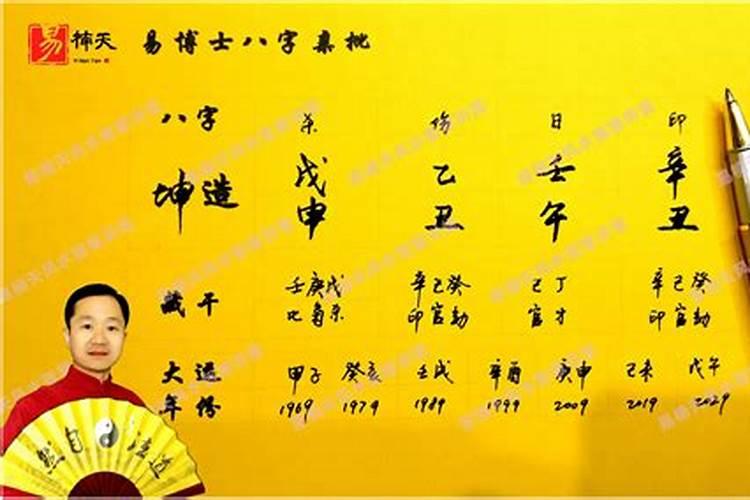 易楠天 易博士八字集批
Yi Nan Tian
八字 杀 伤 日 印
坤造 戊申 乙丑 壬午 辛丑
藏干 壬庚戊 辛己癸 己丁 辛己癸
比枭杀 印官劫 官才 印官劫
大运 甲子 癸亥 壬戌 辛酉 庚申 己未 戊午
年份 1969 1979 1989 1999 2009 2019 2029
道法自然